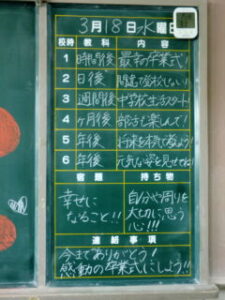 3月18日水曜日
校時 教科 内容
1 時間後 最幸の卒業式!
2 日後 間違って登校しない!!
3 週間後 中学校生活スタート
4 ヶ月後 部活も楽しんで!
5 年後 将来を本気で考よう!
6 年後 元気な姿を見せてね!
宿題 持ち物
幸せに
なること!!
自分や周りを
大切に思う
心!!!
連絡事項
今までありがとう!
感動の卒業式にしよう!!